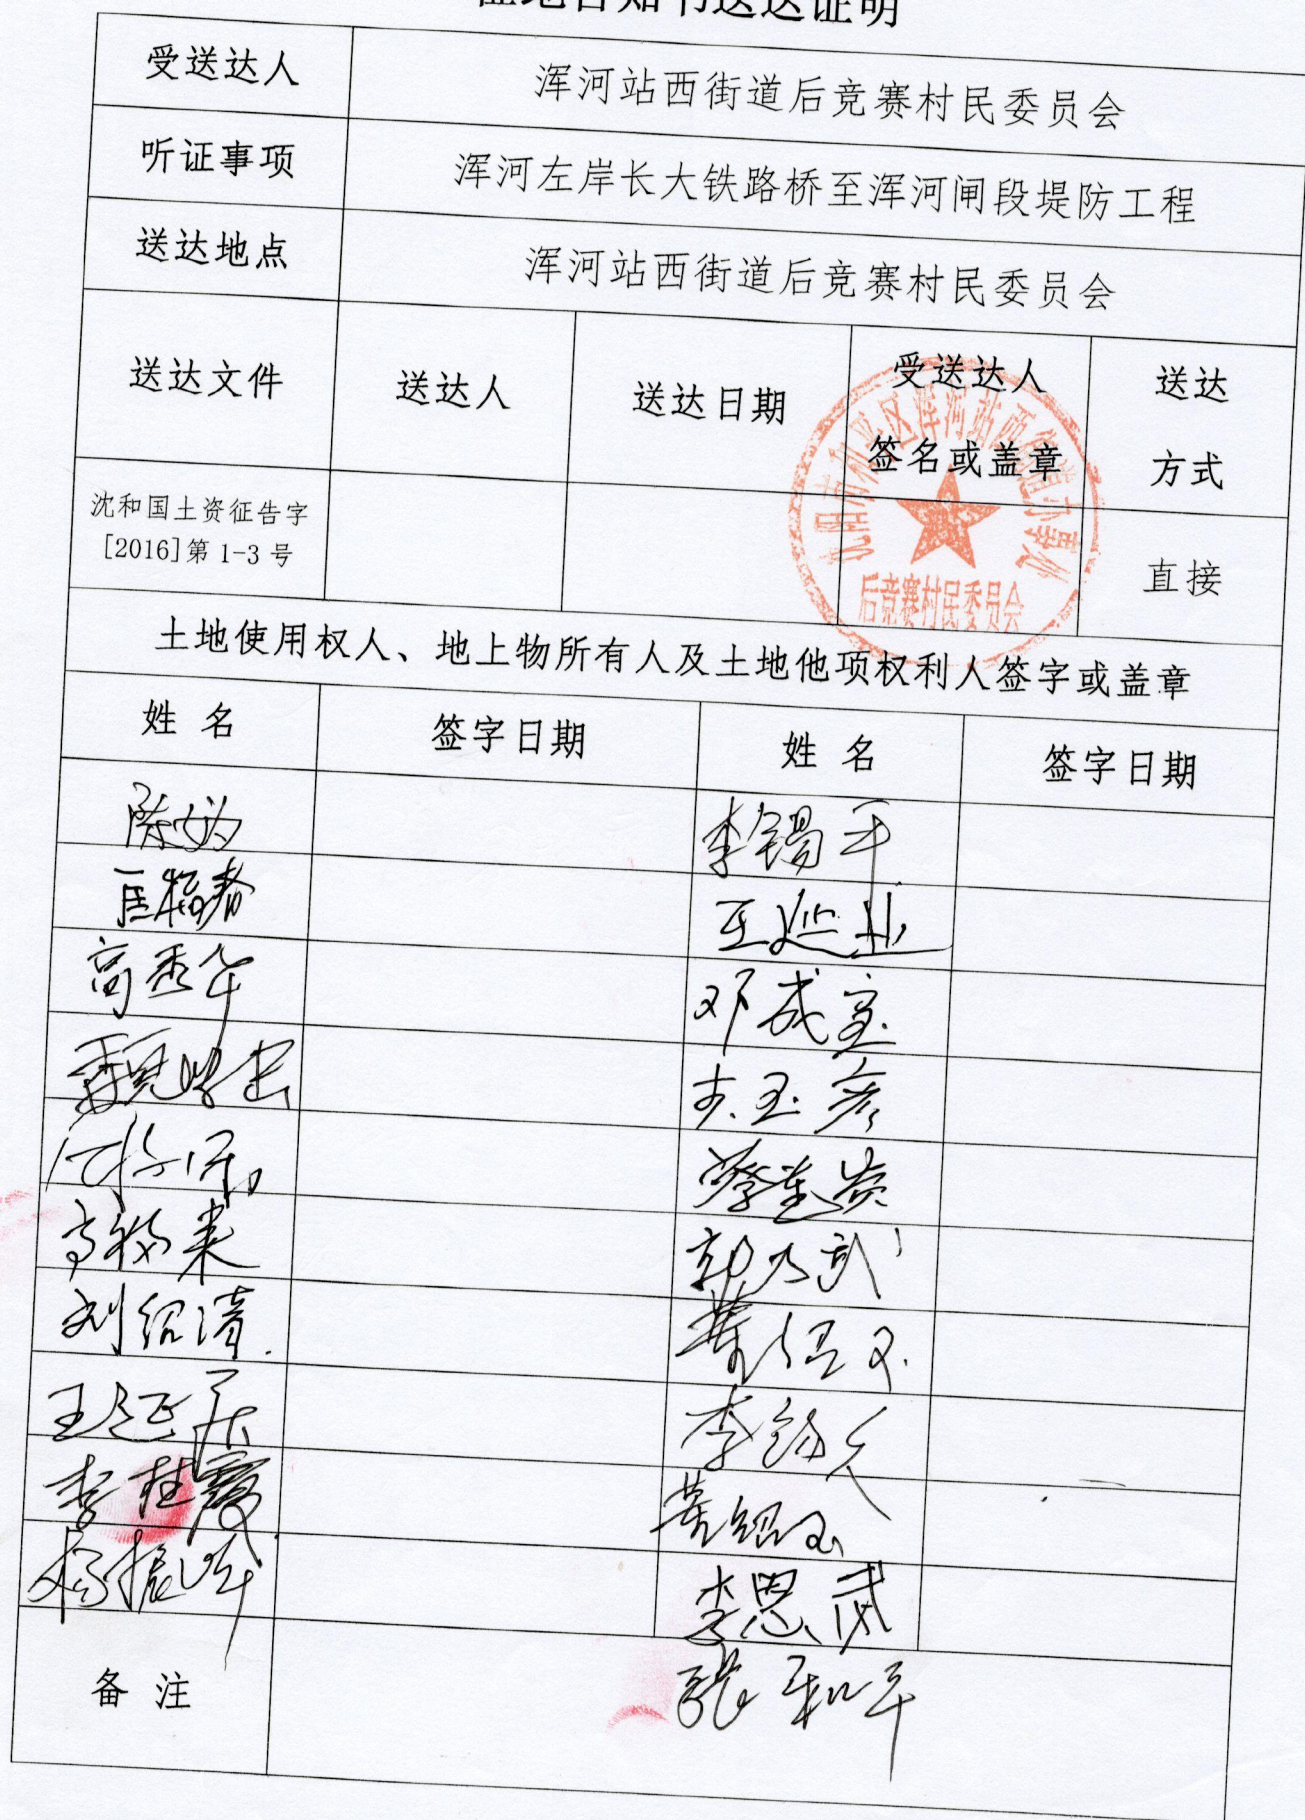 征地告知书送达证明
受送达人 浑河站西街道后竞赛村民委员会
听证事项 浑河左岸长大铁路桥至浑河闸段堤防工程
送达地点 浑河站西街道后竞赛村民委员会
送达文件 送达人 送达日期 受送达人 送达
签名或盖章 方式
沈和国土资征告字
[2016]第 1-3 号 直接
沈阳市和平区浑河站西街道办事处
后竞赛村民委员会
土地使用权人、地上物所有人及土地他项权利人签字或盖章
姓 名 签字日期 姓 名 签字日期
李锡平
王延业
高秀华 邓成宝
高福来
刘绍清
李桂霞
杨振华 李思武
备 注 张和平